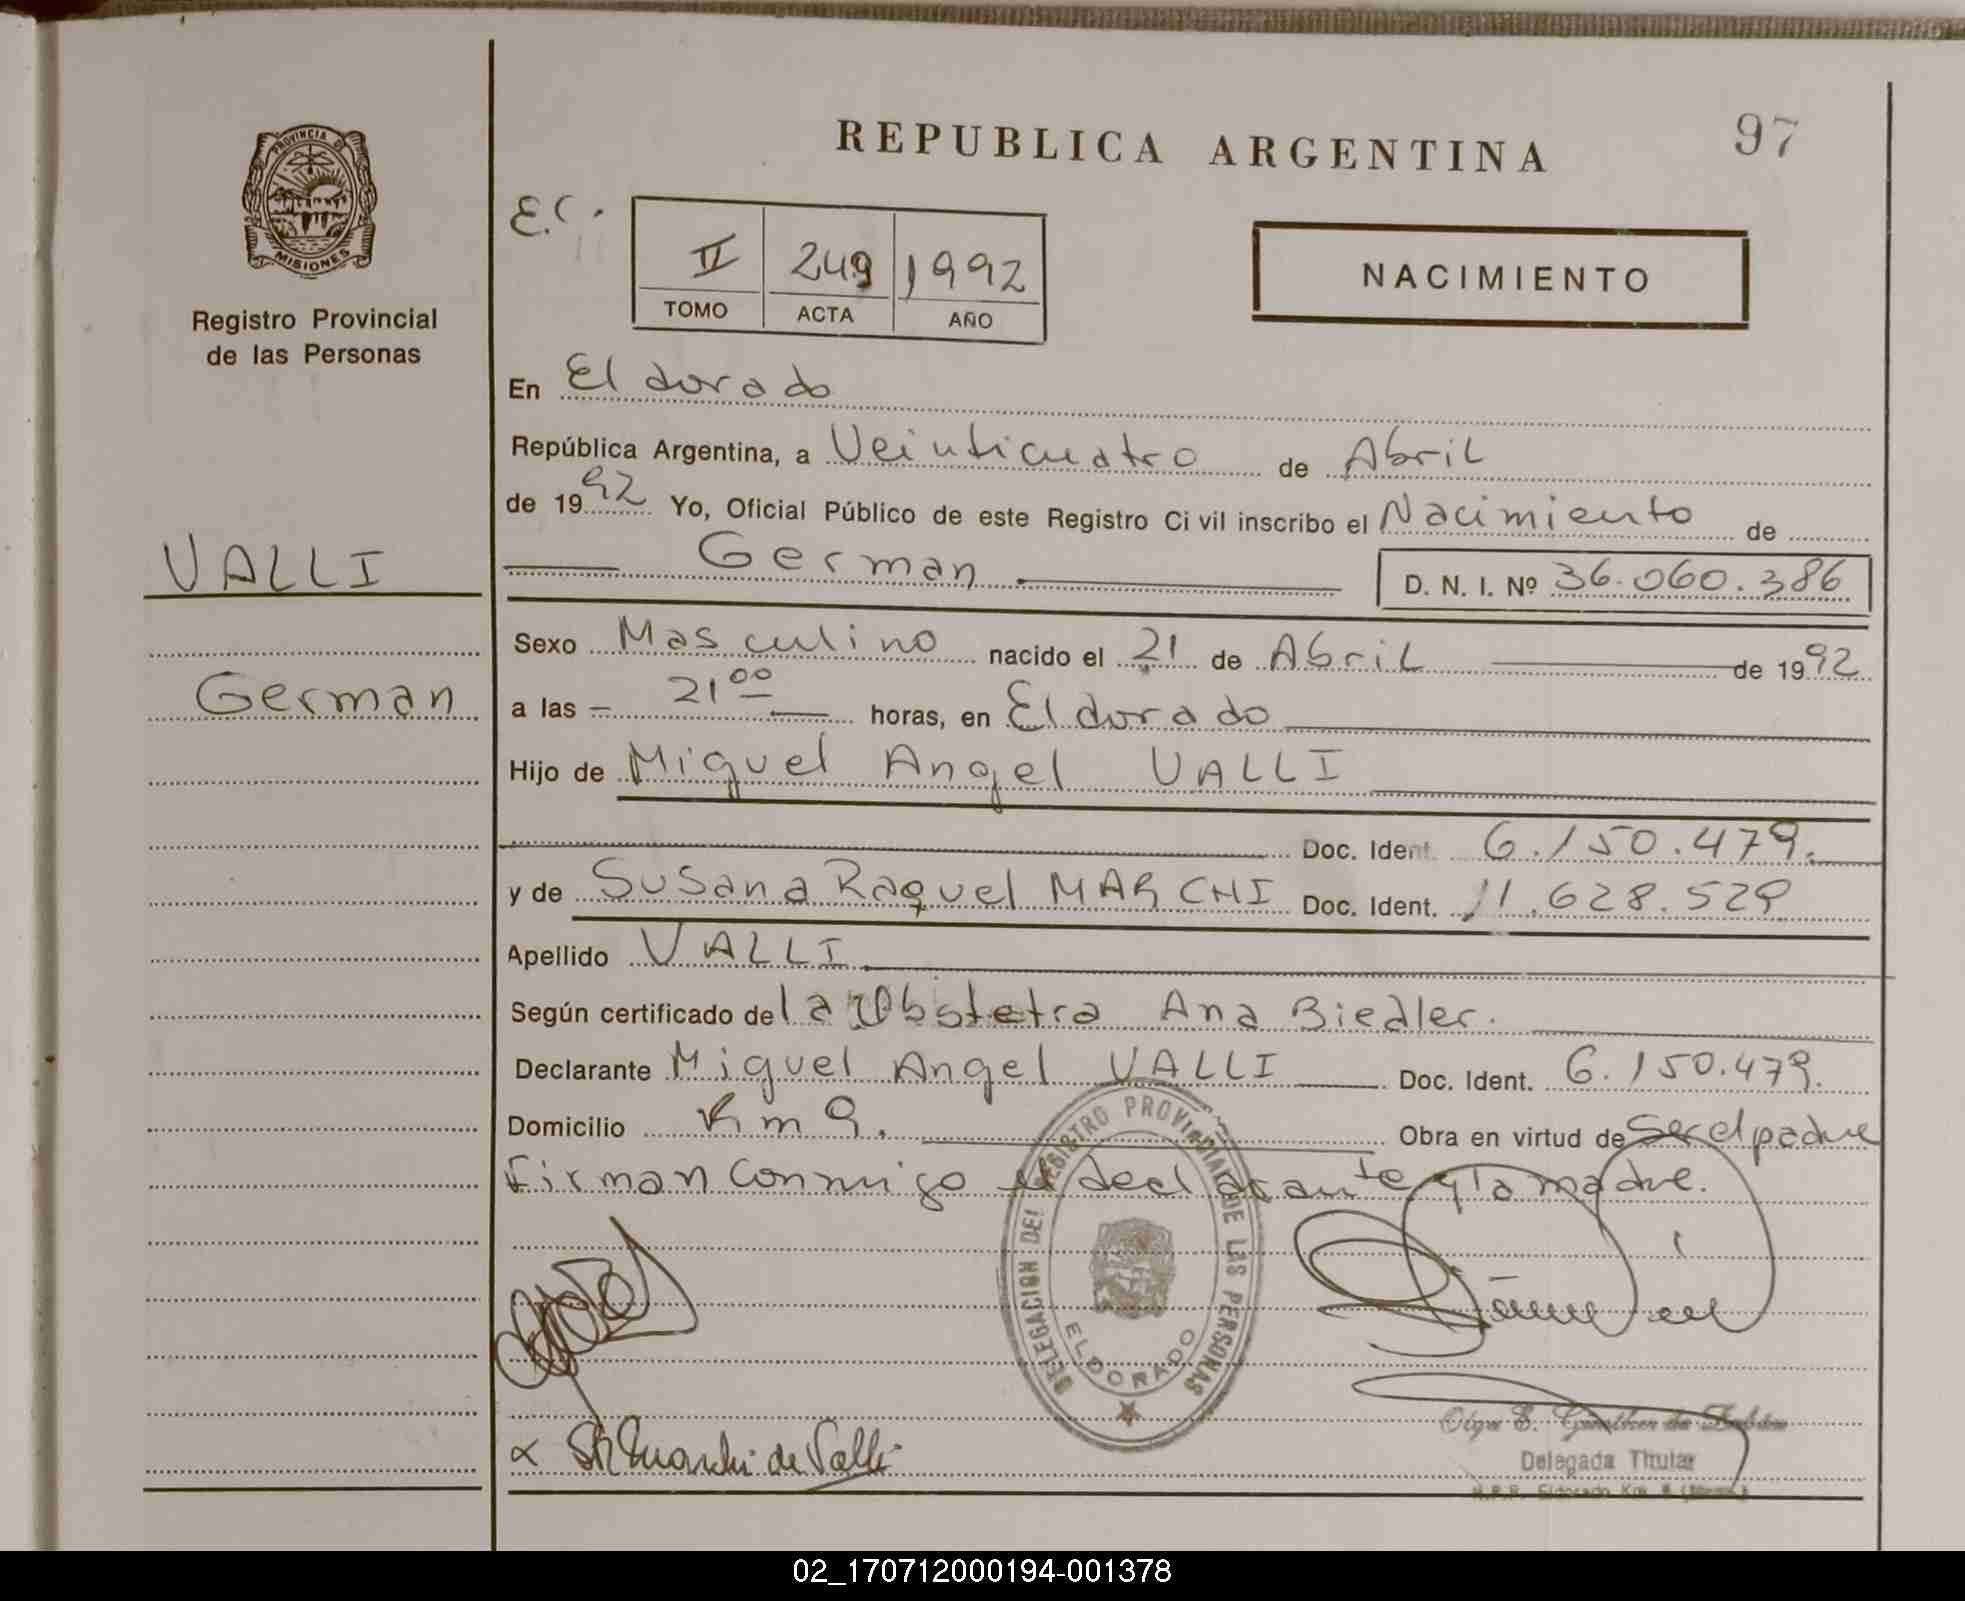 REPUBLICA ARGENTINA
97
PROVINCIA DE
MISIONES
Registro Provincial
de las Personas
E.C.
II 249 1992
TOMO ACTA AÑO
NACIMIENTO
En Eldorado
República Argentina, a Veinticuatro de Abril
de 1992 Yo, Oficial Público de este Registro Civil inscribo el Nacimiento de
German D. N. I. Nº 36.060.386
VALLI
German
Sexo Masculino nacido el 21 de Abril de 1992
a las 21 00 horas, en Eldorado
Hijo de Miguel Angel VALLI
Doc. Ident. 6.150.479.
y de Susana Raquel MARCHI Doc. Ident. 11.628.529
Apellido VALLI
Según certificado de la Obstetra Ana Biedler.
Declarante Miguel Angel VALLI Doc. Ident. 6.150.479.
Domicilio Km 9. Obra en virtud de ser el padre
Firman conmigo el declarante y la madre.
DELEGACION DEL REGISTRO PROVINCIAL DE LAS PERSONAS
ELDORADO
SRMarchi de Valli
Olga E.
Delegada Titular
Eldorado Km.
02_170712000194-001378